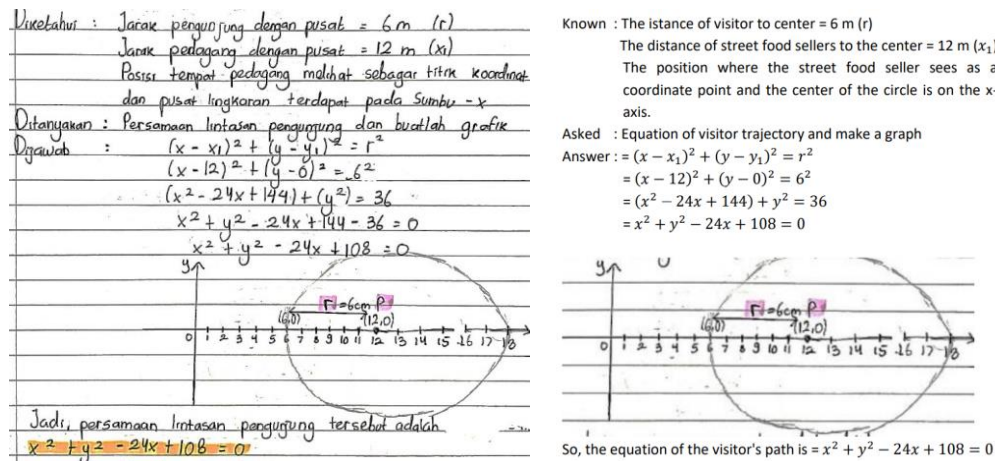 Diketahui : Jarak pengunjung dengan pusat = 6 m (r)
Jarak pedagang dengan pusat = 12 m (x₁)
Posisi tempat pedagang melihat sebagai titik koordinat
dan pusat lingkaran terdapat pada Sumbu -x
Ditanyakan : Persamaan lintasan pengunjung dan buatlah grafik
Dijawab : (x - x₁)² + (y - y₁)² = r²
(x - 12)² + (y - 0)² = 6²
(x² - 24x + 144) + (y²) = 36
x² + y² - 24x + 144 - 36 = 0
x² + y² - 24x + 108 = 0
y
r = 6cm P
(6,0) (12,0)
0 1 2 3 4 5 6 7 8 9 10 11 12 13 14 15 16 17 18
Jadi, persamaan lintasan pengunjung tersebut adalah
x² + y² - 24x + 108 = 0
Known : The istance of visitor to center = 6 m (r)
The distance of street food sellers to the center = 12 m (x₁)
The position where the street food seller sees as a
coordinate point and the center of the circle is on the x-
axis.
Asked : Equation of visitor trajectory and make a graph
Answer : = (x − x₁)² + (y − y₁)² = r²
= (x − 12)² + (y − 0)² = 6²
= (x² − 24x + 144) + y² = 36
= x² + y² − 24x + 108 = 0
y
r = 6cm P
(6,0) (12,0)
0 1 2 3 4 5 6 7 8 9 10 11 12 13 14 15 16 17 18
So, the equation of the visitor's path is = x² + y² − 24x + 108 = 0